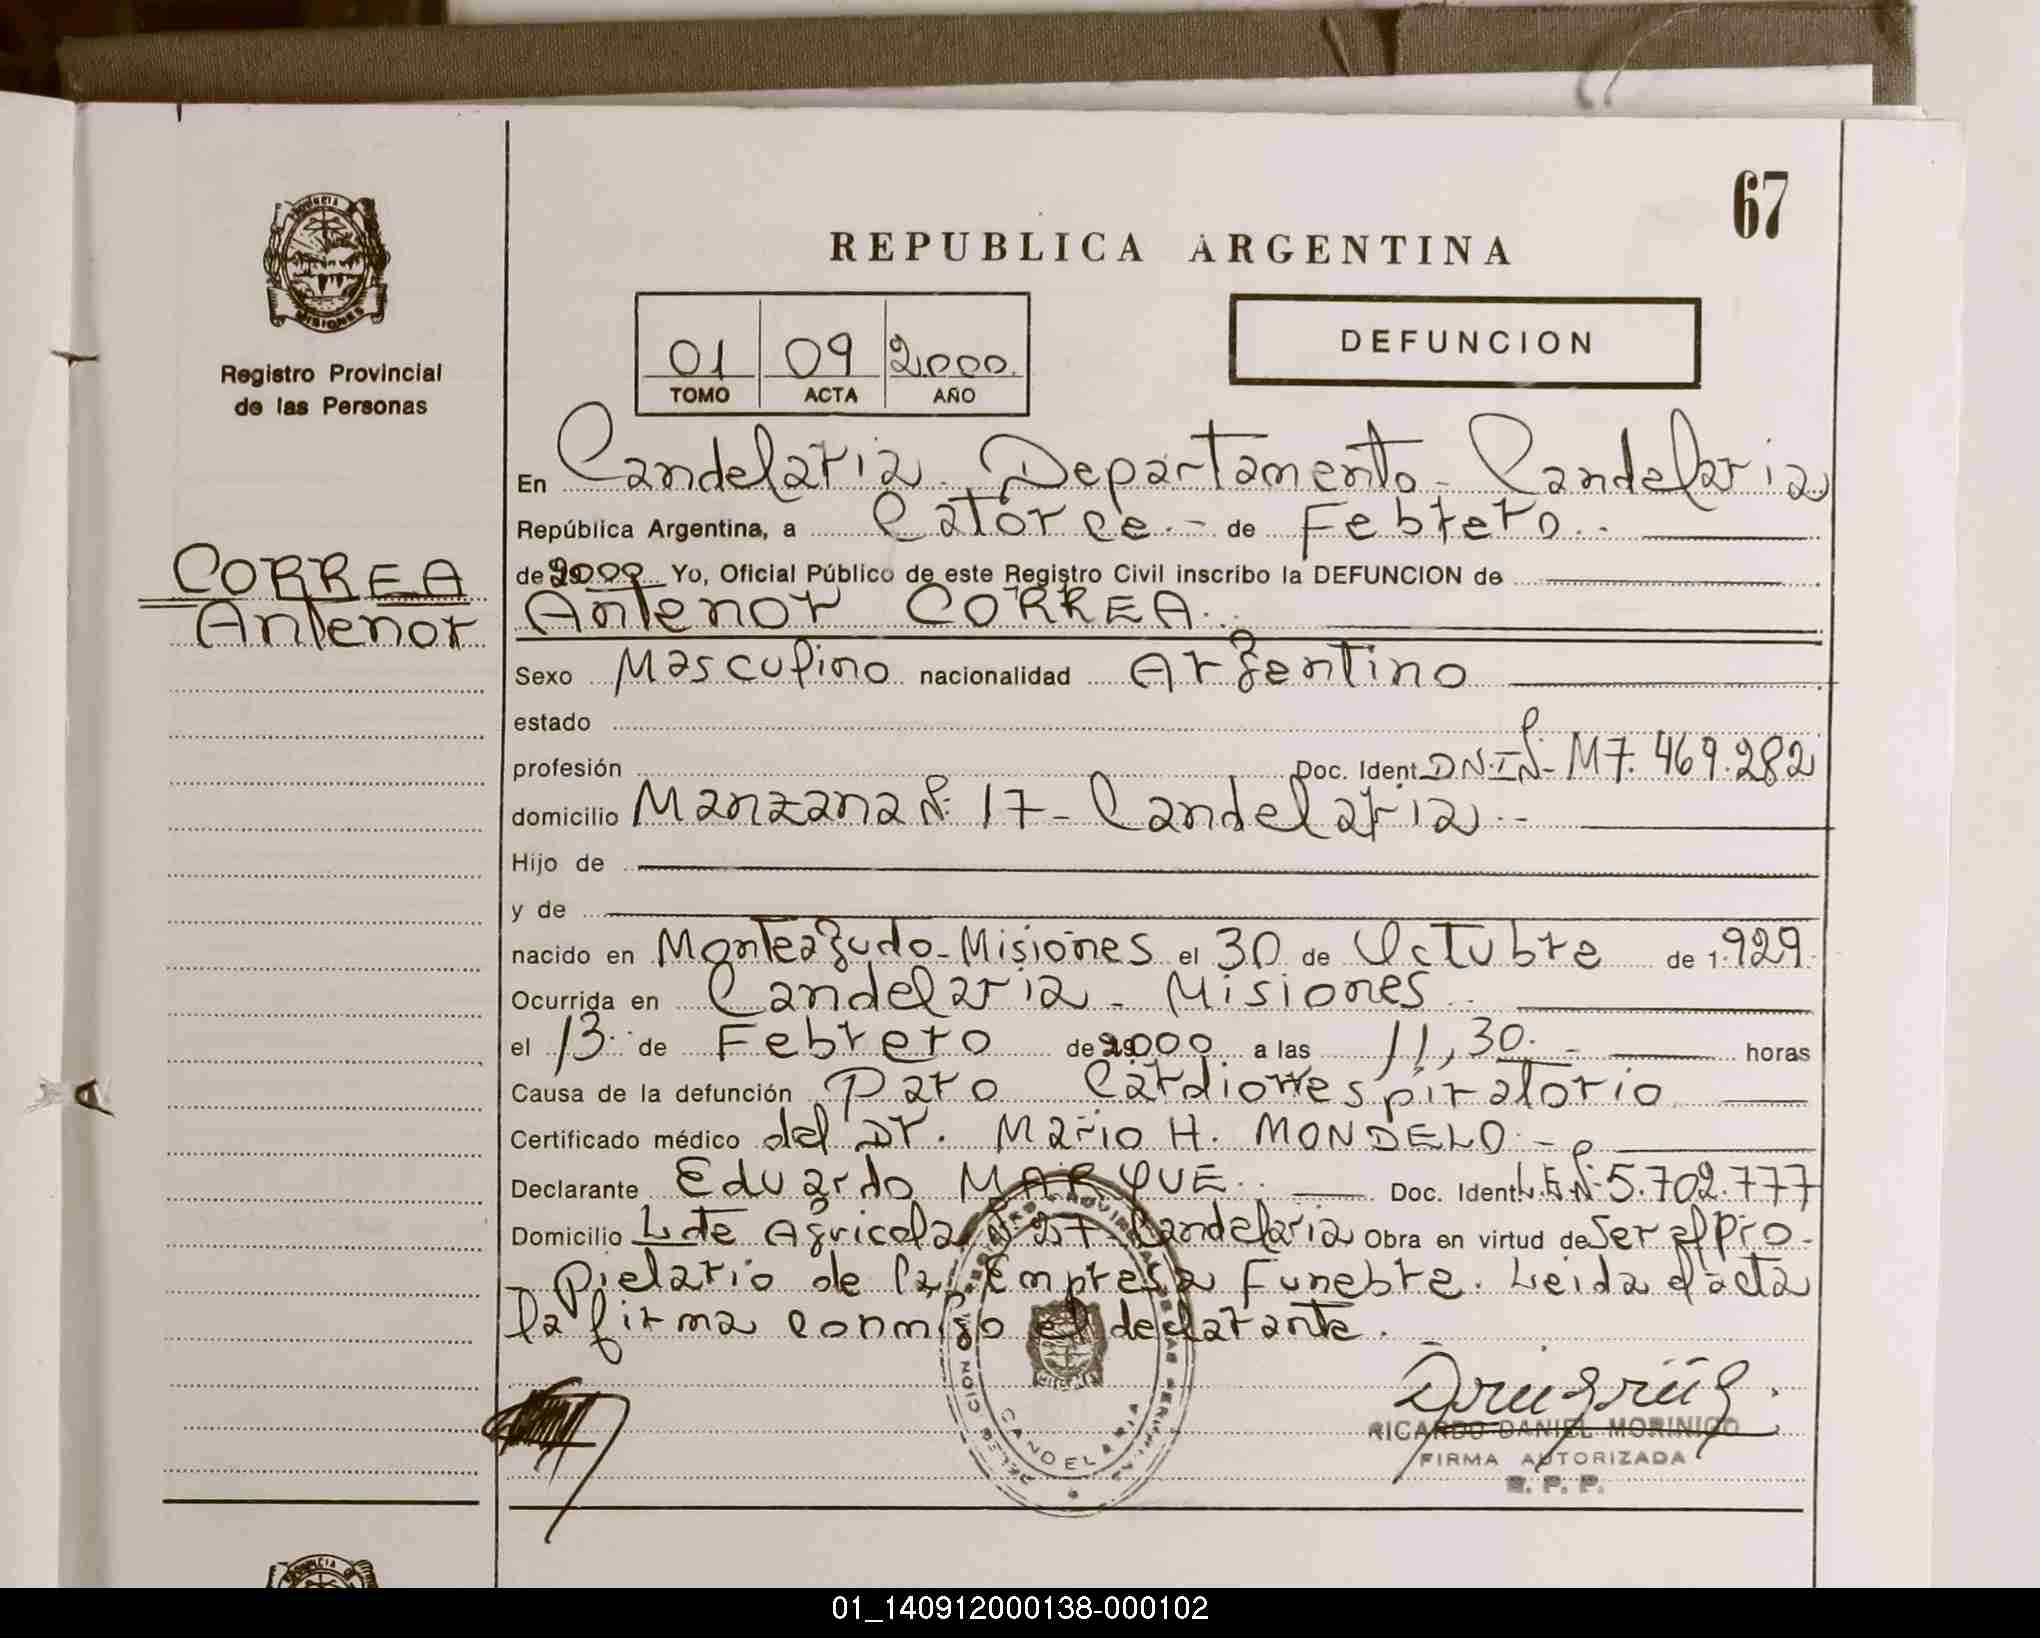 67
REPUBLICA ARGENTINA
PROVINCIA
MISIONES
Registro Provincial
de las Personas
01 09 2.000
TOMO ACTA AÑO
DEFUNCION
En Candelaria - Departamento - Candelaria
República Argentina, a Catorce.- de Febrero.-
de 2000 Yo, Oficial Público de este Registro Civil inscribo la DEFUNCION de
CORREA
Antenor
Antenor CORREA.
Sexo Masculino nacionalidad Argentino
estado
profesión Doc. Ident. D.N.I.Nº- M7.469.282
domicilio Manzana Nº 17 - Candelaria.-
Hijo de
y de
nacido en Monteagudo-Misiones el 30 de Octubre de 1.929.
Ocurrida en Candelaria - Misiones.
el 13 de Febrero de 2000 a las 11,30.- horas
Causa de la defunción Paro Cardiorrespiratorio
Certificado médico del Dr. Mario H. MONDELO.-
Declarante Eduardo MARQUE. Doc. Ident L.E.Nº 5.702.777
Domicilio Lote Agricola Nº 27 Candelaria Obra en virtud de Ser el pro-
pietario de la Empresa Funebre. Leida el acta
la firma conmigo el declarante.
CANDELARIA
RICARDO DANIEL MORINIGO
FIRMA AUTORIZADA
R. P. P.
01_140912000138-000102